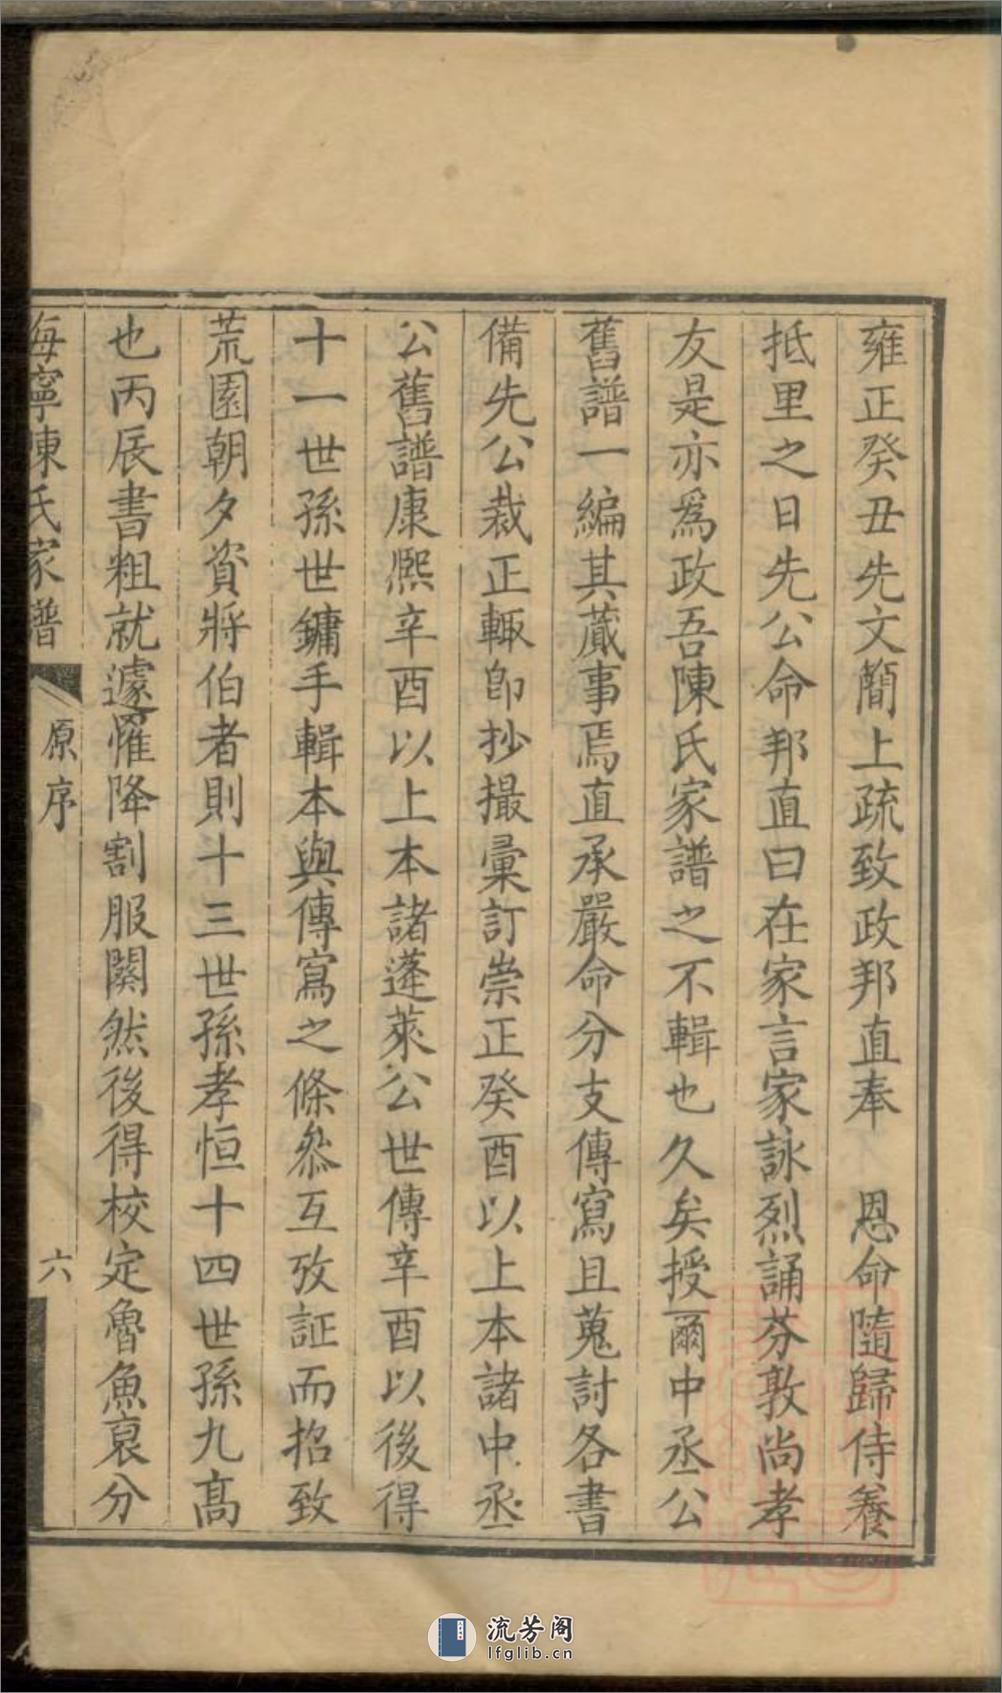 雍正癸丑先文簡上疏致政邦直奉　恩命隨歸侍養
抵里之日先公命邦直曰在家言家詠烈誦芬敦尚孝
友是亦爲政吾陳氏家譜之不輯也久矣授爾中丞公
舊譜一編其蕆事焉直承嚴命分支傳寫且蒐討各書
備先公裁正輙卽抄撮彙訂崇正癸酉以上本諸中丞
公舊譜康熈辛酉以上本諸蓬萊公世傳辛酉以後得
十一世孫世鏞手輯本與傳寫之條叅互攷証而招致
荒園朝夕資將伯者則十三世孫孝恒十四世孫九高
也丙辰書粗就遽罹降割服闋然後得校定魯魚裒分
海寧陳氏家譜
原序
六
流芳阁
lfglib.cn